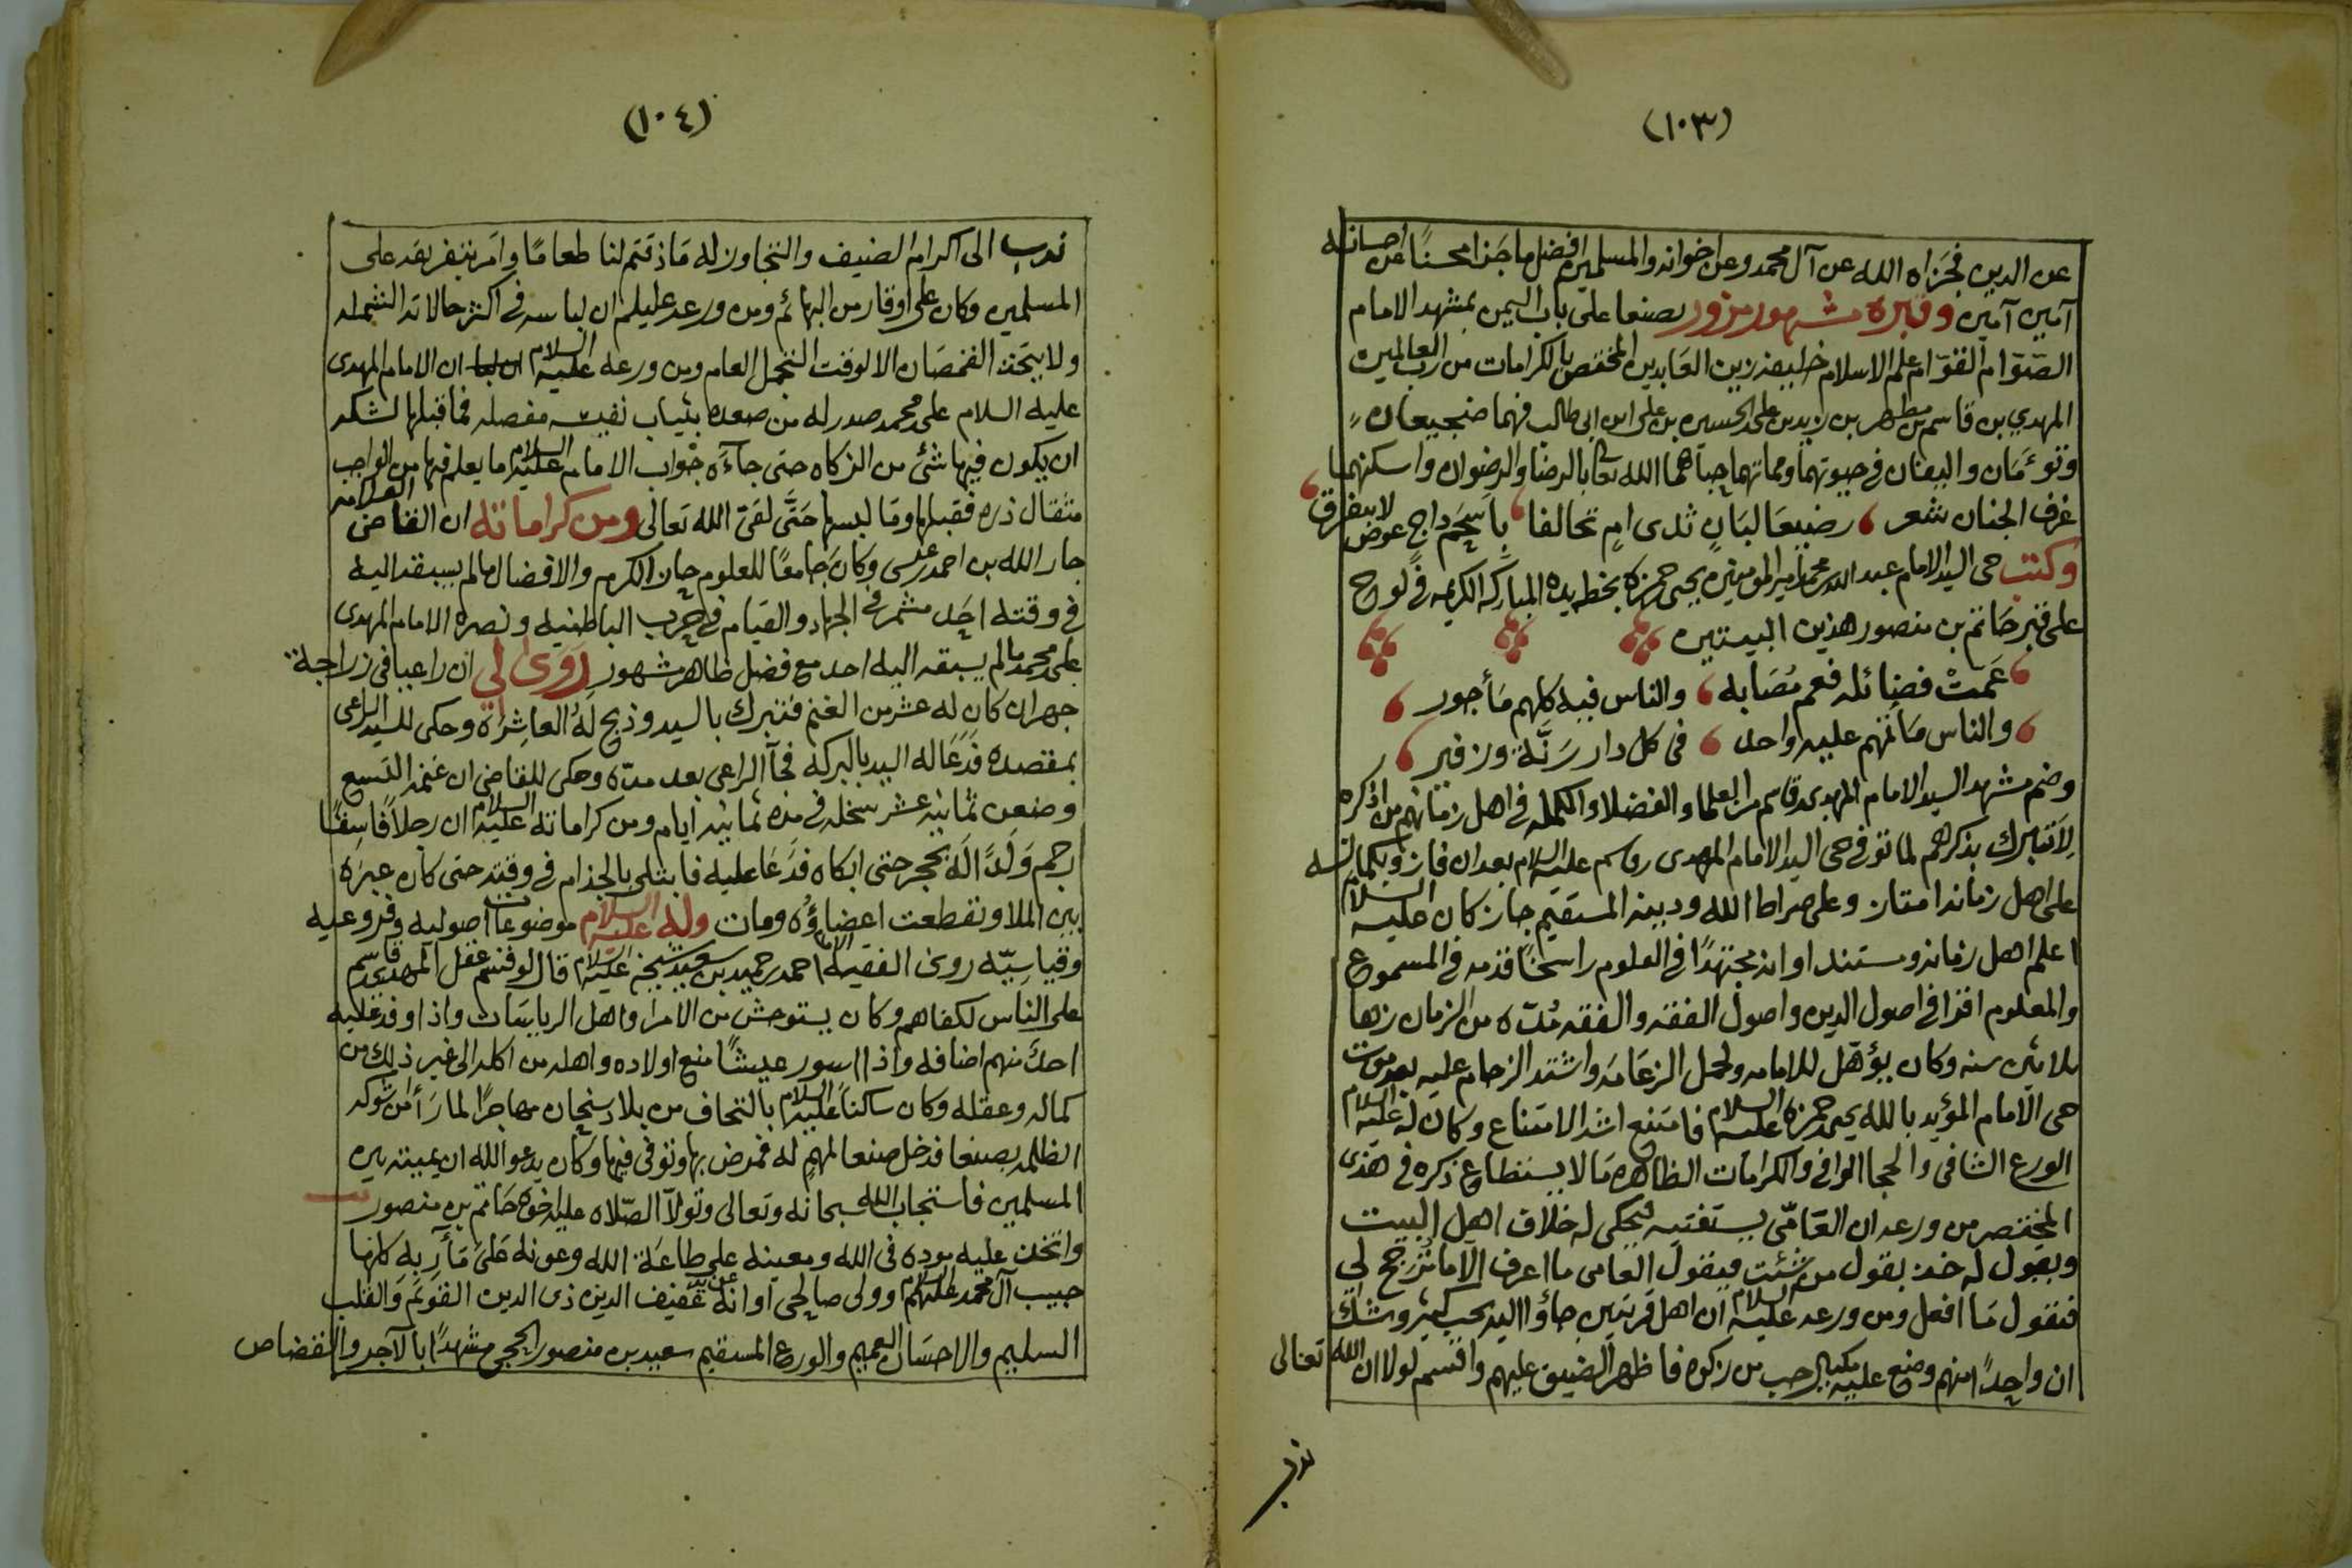 (١٠٣)
عن الدين فجزاه الله عن آل محمد وعن اخوانه والمسلمين افضل ما جزا محسنًا عن احسانه
آمين آمين وقبره مشهور مزور بصنعا على باب اليمن بمشهد الامام
الصوّام القوّام علم الاسلام خليفة زين العابدين المختص بالكرامات من رب العالمين
المهدي بن قاسم بن مطهر بن زيد بن علي الحسين بن علي ابن ابي طالب فهما ضجيعان
وتوءمان واليفان في حيوتهما ومماتهما حباهما الله تعالى بالرضا والرضوان واسكنهما
غرف الجنان شعر رضيعا لبانٍ ثدى امٍ تحالفا باسحم داج عوض لا يتفرق
وكتب حي السيد الامام عبد الله بن محمد امير المومنين يحيى حمزه بخط يده المباركه الكريمه في لوح
على قبر حاتم بن منصور هذين البيتين
عمتْ فضائله فعم مُصَابه والناس فيه كلهم مأجور
والناس مأتمهم عليه واحد في كل دار رنّة وزفير
وضم مشهد السيد الامام المهدى قاسم من العلماء والفضلاء والكمله في اهل زمانهم من اذكره
لاتبرك بذكرهم لما توفي حي السيد الامام المهدى قاسم عليه السلام بعد ان فاز وبكماله
على اهل زمانه امتاز وعلى صراط الله ودينه المستقيم جاز كان عليه السلام
اعلم اهل زمانه ومستند اوانه مجتهدًا في العلوم راسخًا قدمه في المسموع
والمعلوم اقرا في اصول الدين واصول الفقه والفقه مُدّه من الزمان زها
ثلاثين سنه وكان يؤهّل للامامه ولحمل الزعامه واشتد الزحام عليه بعد موت
حي الامام المؤيد بالله يحيى حمزه عليه السلام فامتنع اشد الامتناع وكان له عليه السلام
الورع الشافى والحجا الوافي والكرامات الظاهره ما لا يستطاع ذكره في هذى
المختصر من ورعه ان العامّي يستفتيه فيحكى له خلاف اهل البيت
ويقول له خذ بقول من شئت فيقول العامى ما اعرف الا ما ترجح لي
فيقول ما افعل ومن ورعه عليه السلام ان اهل قريتين جاؤا اليه بحب كثير وشك
ان واحدًا منهم وضع عليه مكيال حب من زكوه فاظهر الضيق عليهم واقسم لولا ان الله تعالى
ندب
(١٠٤)
ندب الى اكرام الضيف والتجاوز له ماذ قتم لنا طعامًا وامر بتفريقه على
المسلمين وكان على اوقار من البهائم ومن ورعه عليلم ان لباسه في اكثر حالاته الشمله
ولا يتخذ القمصان الا لوقت التجمل العام ومن ورعه عليه السلام ان الامام المهدى
عليه السلام على محمد صدر له من صعده بثياب نفيسه مفصله فما قبلها لشكه
ان يكون فيها شئ من الزكاه حتى جآءه جواب الامام عليه السلام ما يعلم فيها من الواجب
مثقال ذره فقبلها وما لبسها حتَّى لقى الله تعالى ومن كراماته ان القاضى العلامه
جار الله بن احمد عيسى وكان جامعًا للعلوم حاز الكرم والافضال ما لم يسبقه اليه
في وقته احد مشمر في الجهاد والقيام في حرب الباطنيه ونصره الامام المهدى
على محمد ما لم يسبقه اليه احد مع فضل ظاهر مشهور روى لي ان راعيا في زراجة
جهران كان له عشر من الغنم فتبرك بالسيد وذبح لهُ العاشره وحكى للسيد الراعى
بمقصده فدعا له السيد بالبركه فجآ الراعى بعد مدّه وحكى للقاضى ان غنمه التسع
وضعن ثمانيه عشر سخله في مده ثمانيه ايام ومن كراماته عليه السلام ان رجلاً فاسقًا
رجم ولدًا له بحجر حتى ابكاه فدعا عليه فابتلى بالجذام في وقته حتى كان عبره
بين الملا وتقطعت اعضاؤُه ومات وله عليه السلام موضوعات اصوليه وفروعيه
وقياسيّه روى الفقيه الامام احمد حميد بن سعيد شيخه عليه السلام قال لو قسم عقل المهدى قاسم
على الناس لكفاهم وكان يستوحش من الامرا واهل الرياسات واذا وفد عليه
احدً منهم اضافه واذا اسور عيشًا منع اولاده واهله من اكله الى غير ذلك من
كماله وعقله وكان ساكناً عليه السلام بالتحاف من بلاد سنحان مهاجرًا لما رأ من شوكه
الظلمه بصنعا فدخل صنعا لمهمٍ له فمرض بها وتوفى فيها وكان يدعو الله ان يميته بين
المسلمين فاستجاب الله سبحانه وتعالى وتولآ الصّلاه عليه اخوه حاتم بن منصور
واتخذ عليه موده في الله ومعينه على طاعة الله وعونه على مآربه كلها
حبيب آل محمد عليهم السلام وولى صالحى اوانه عفيف الدين ذى الدين القويم والقلب
السليم والاحسان العميم والورع المستقيم سعيد بن منصور الحجي مشهدًا بالآجر والقضاض